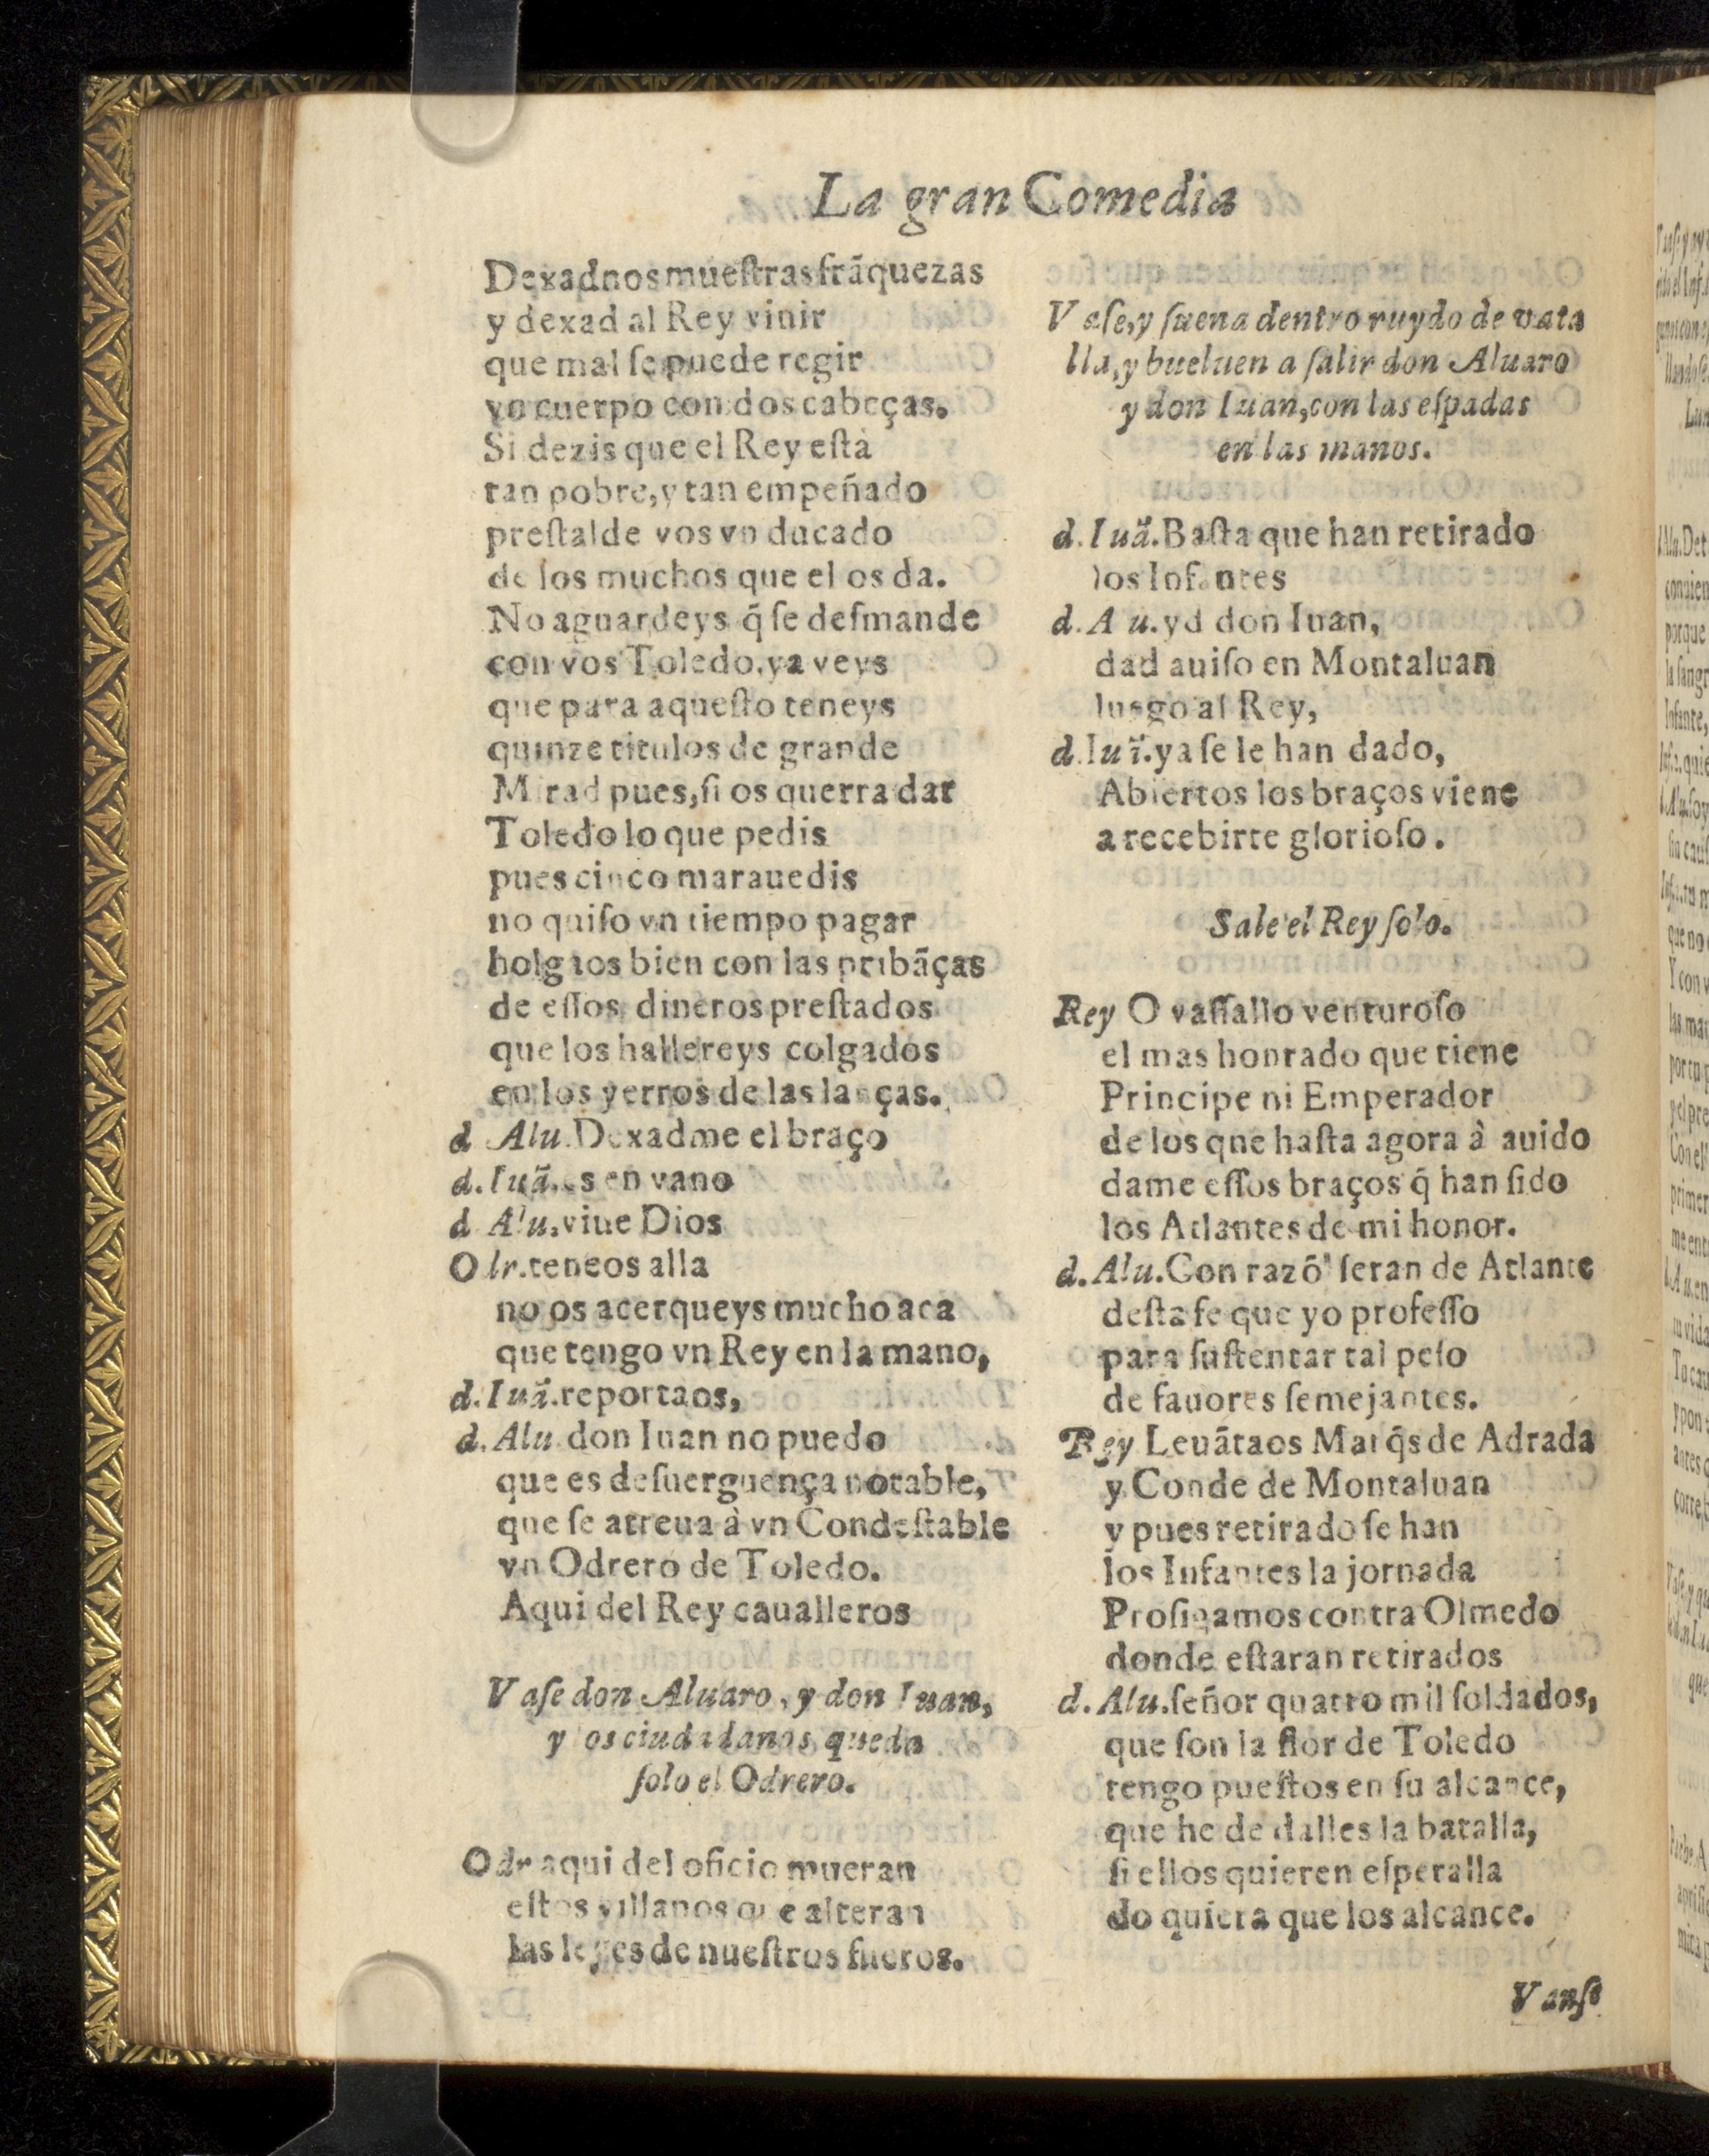 La gran Comedia
Dexadnos mueſtras frãquezas
y dexad al Rey viuir
que mal ſe puede regir
vn cuerpo con dos cabeças.
Si dezis que el Rey eſtà
tan pobre, y tan empeñado
preſtalde vos vn ducado
de los muchos que el os da.
No aguardeys q̃ ſe deſmande
con vos Toledo, ya veys
que para aqueſto teneys
quinze titulos de grande
Mirad pues, ſi os querra dar
Toledo lo que pedis
pues cinco marauedis
no quiſo vn tiempo pagar
holgaos bien con las pribãças
de eſſos dineros preſtados
que los hallereys colgados
en los yerros de las lanças.
d Alu. Dexadme el braço
d. Iuã. es en vano
d Alu, viue Dios
Olr. teneos alla
no os acerqueys mucho aca
que tengo vn Rey en la mano,
d. Iuã. reportaos,
d. Alu don Iuan no puedo
que es deſuerguença notable,
que ſe atreua à vn Condeſtable
vn Odrero de Toledo.
Aqui del Rey caualleros
Vaſe don Aluaro, y don Iuan,
y os ciudadanos, queda
ſolo el Odrero.
Odr aqui del oficio mueran
eſtos villanos que alteran
las leyes de nueſtros fueros.
Vaſe, y ſuena dentro ruydo de vata
lla, y bueluen a ſalir don Aluaro
y don Iuan, con las eſpadas
en las manos.
d. Iuã. Baſta que han retirado
los Infantes
d. A u. yd don Iuan,
dad auiſo en Montaluan
luego al Rey,
d. Iuã. ya ſe le han dado,
Abiertos los braços viene
a recebirte glorioſo.
Sale el Rey ſolo.
Rey O vaſſallo venturoſo
el mas honrado que tiene
Principe ni Emperador
de los que haſta agora à auido
dame eſſos braços q̃ han ſido
los Atlantes de mi honor.
d. Alu. Con razõ ſeran de Atlante
deſta fe que yo profeſſo
para ſuſtentar tal peſo
de fauores ſemejantes.
Rey Leuãtaos Marq̃s de Adrada
y Conde de Montaluan
y pues retirado ſe han
los Infantes la jornada
Proſigamos contra Olmedo
donde eſtaran retirados
d. Alu. ſeñor quatro mil ſoldados,
que ſon la flor de Toledo
tengo pueſtos en ſu alcance,
que he de dalles la batalla,
ſi ellos quieren eſperalla
do quiera que los alcance.
Vanſe